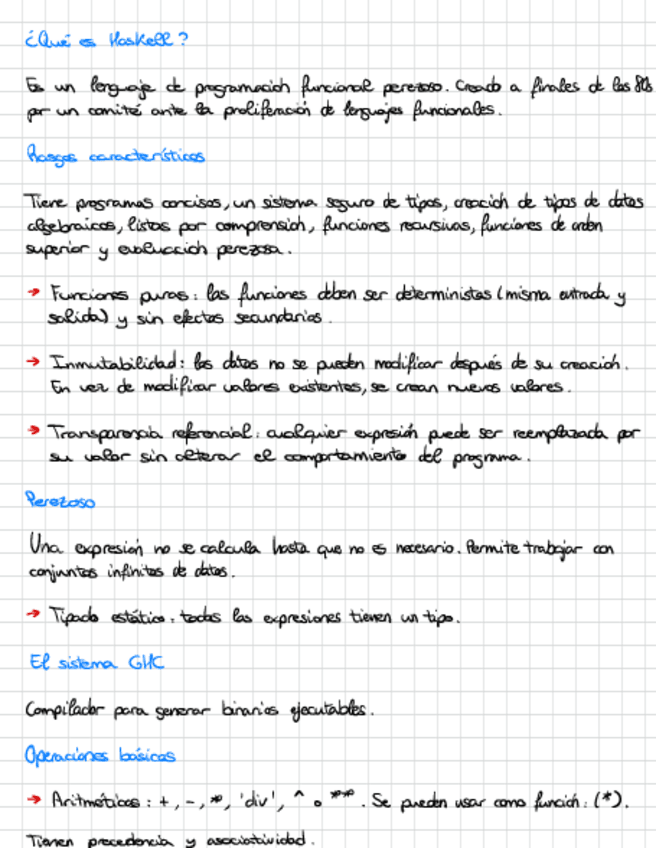 ¿Qué es Haskell?
Es un lenguaje de programación funcional perezoso. Creado a finales de los 80s
por un comité ante la proliferación de lenguajes funcionales.
Rasgos característicos
Tiene programas concisos, un sistema seguro de tipos, creación de tipos de datos
algebraicos, listas por comprensión, funciones recursivas, funciones de orden
superior y evaluación perezosa.
→ Funciones puras: las funciones deben ser deterministas (misma entrada y
salida) y sin efectos secundarios.
→ Inmutabilidad: los datos no se pueden modificar después de su creación.
En vez de modificar valores existentes, se crean nuevos valores.
→ Transparencia referencial: cualquier expresión puede ser reemplazada por
su valor sin alterar el comportamiento del programa.
Perezoso
Una expresión no se calcula hasta que no es necesario. Permite trabajar con
conjuntos infinitos de datos.
→ Tipado estático: todas las expresiones tienen un tipo.
El sistema GHC
Compilador para generar binarios ejecutables.
Operaciones básicas
→ Aritméticas: +, -, *, 'div', ^ o **. Se pueden usar como función: (*).
Tienen precedencia y asociatividad.